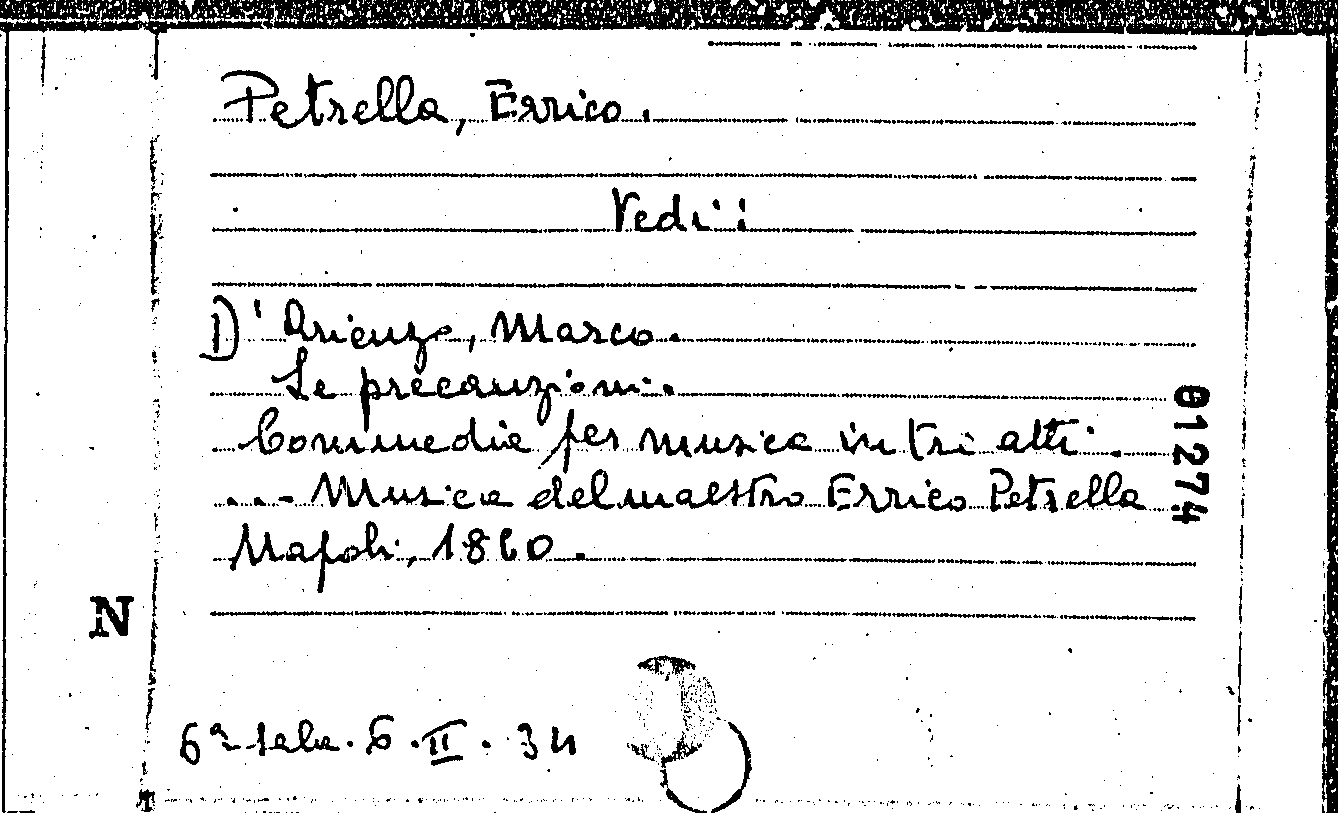 Petrella, Errico.
Vedi:
D'Arienzo, Marco.
Le precauzioni.
Commedia per musica in tri atti.
... Musica del maestro Errico Petrella
Napoli, 1860.
01274
N
6ª sala. 6. II. 34